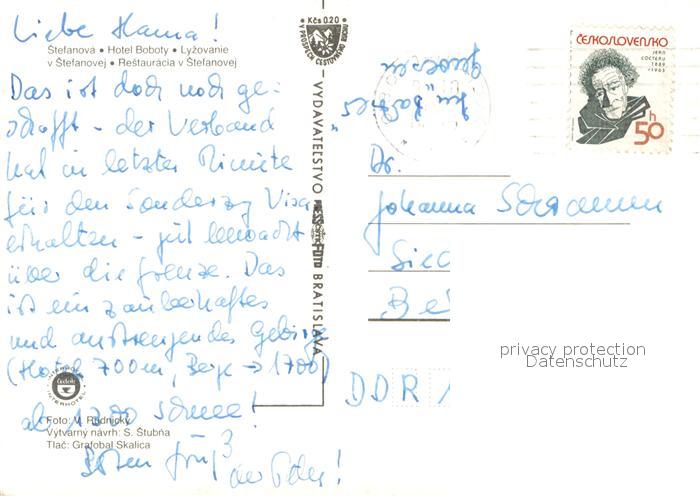 Liebe Hanna!
Štefanová • Hotel Boboty • Lyžovanie
v Štefanovej • Reštaurácia v Štefanovej
Das ist doch noch ge-
schafft - der Verband
hat in letzter Minute
für den Sonderzug Visa
erhalten - gut bewacht
über die Grenze. Das
ist ein zauberhaftes
und anstrengendes Gebirge
(Hotel 700m, Berge → 1700)
ab 1200 Schnee!
INTERHOTEL
Čedok
INTERHOTEL
Foto: V. Rudnický
Výtvarný návrh: S. Štubňa
Tlač: Grafobal Skalica
der Peter!
Kčs 0.20
V PROSPECH CESTOVNÉHO RUCHU
VYDAVATEĽSTVO PRESSFOTO BRATISLAVA
ČESKOSLOVENSKO
JEAN
COCTEAU
1889
-1963
50h
Dr.
Johanna
DDR
privacy protection
Datenschutz